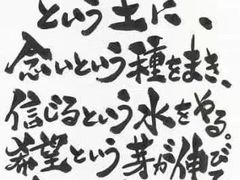 という土に、
念いという種をまき、
信じるという水をやる。
希望という芽が伸びて